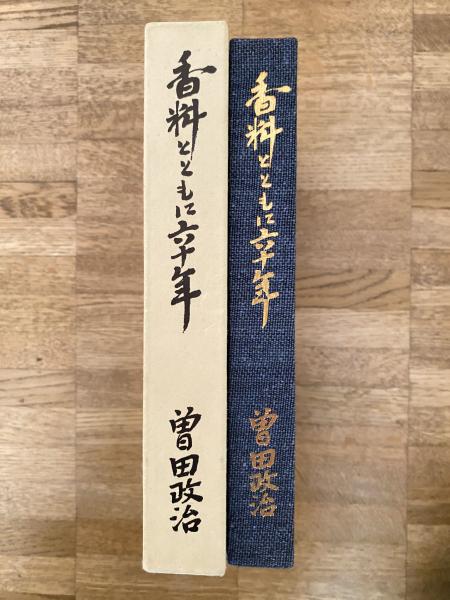 香料とともに六十年
曽田政治
香料とともに六十年
曽田政治